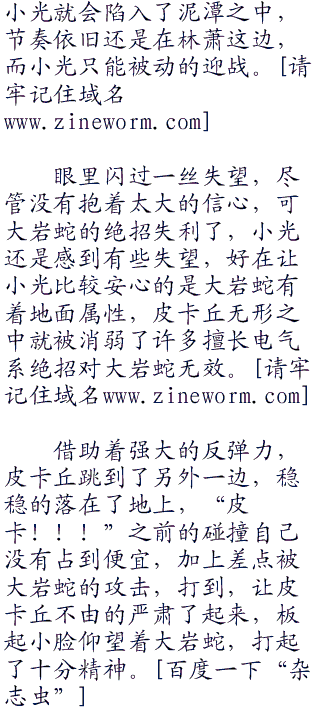 小光就会陷入了泥潭之中，
节奏依旧还是在林萧这边，
而小光只能被动的迎战。[请
牢记住域名
www.zineworm.com]
眼里闪过一丝失望，尽
管没有抱着太大的信心，可
大岩蛇的绝招失利了，小光
还是感到有些失望，好在让
小光比较安心的是大岩蛇有
着地面属性，皮卡丘无形之
中就被消弱了许多擅长电气
系绝招对大岩蛇无效。[请牢
记住域名www.zineworm.com]
借助着强大的反弹力，
皮卡丘跳到了另外一边，稳
稳的落在了地上，“皮
卡！！！”之前的碰撞自己
没有占到便宜，加上差点被
大岩蛇的攻击，打到，让皮
卡丘不由的严肃了起来，板
起小脸仰望着大岩蛇，打起
了十分精神。[百度一下“杂
志虫”]